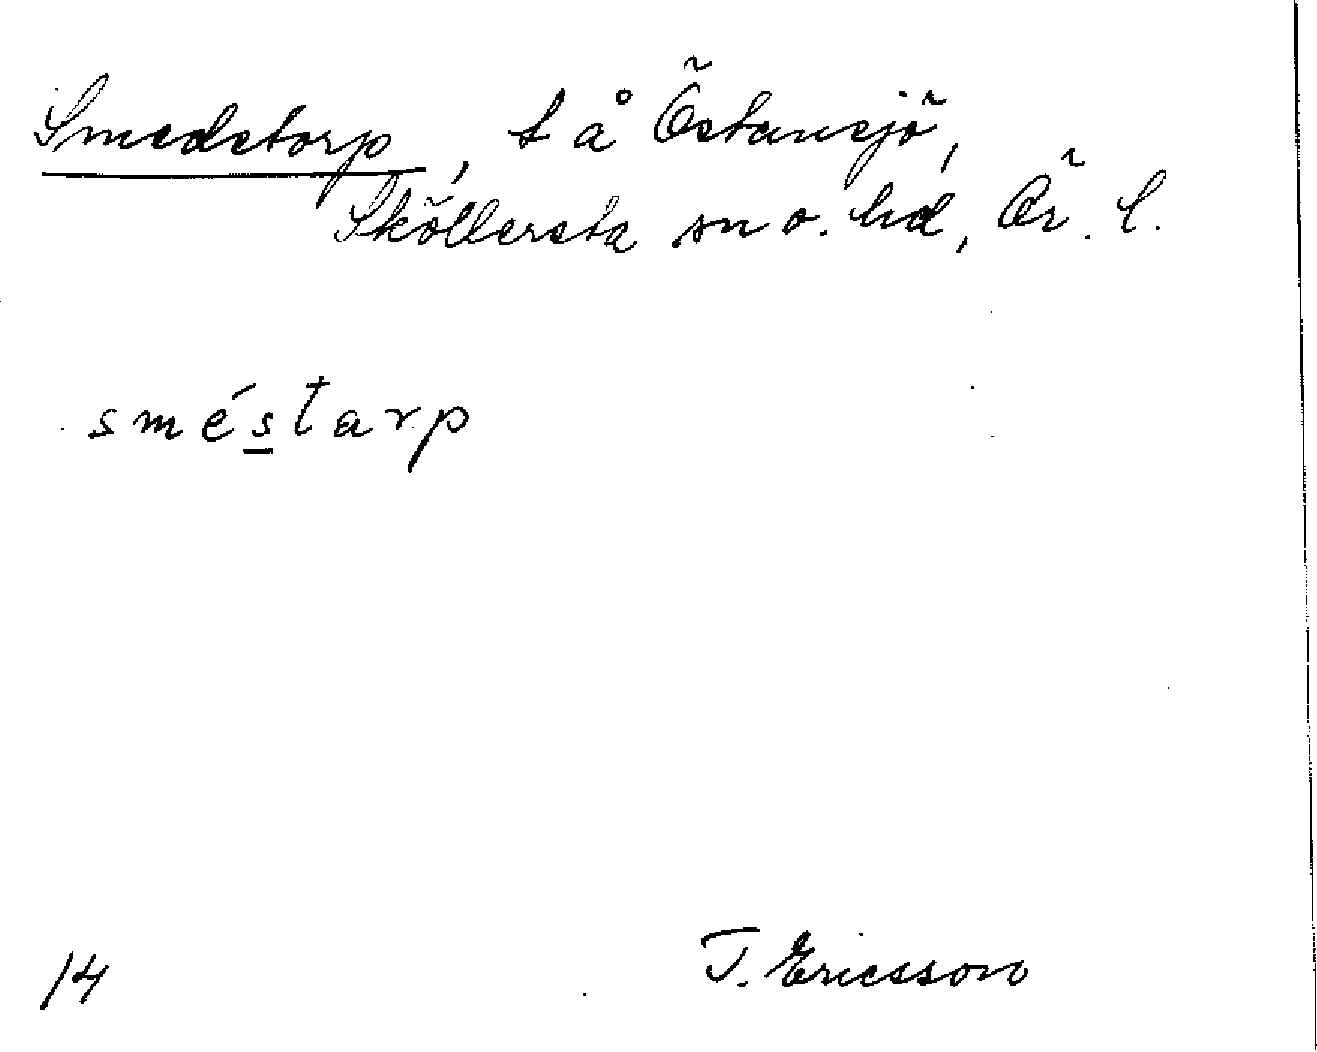 Smedstorp, t å Östansjö,
Sköllersta sn o. hd, Ör. l.
sméstarp
14
T. Ericsson